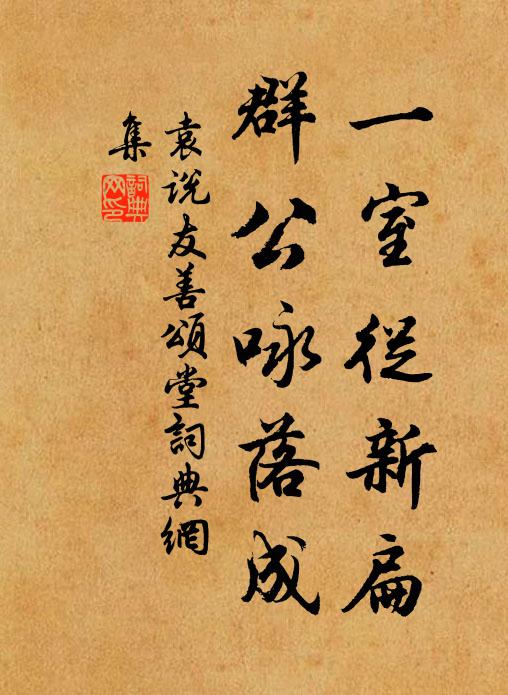 一室從新扁
群公咏落成
袁說友善頌堂詞典網
集
詞典
网印